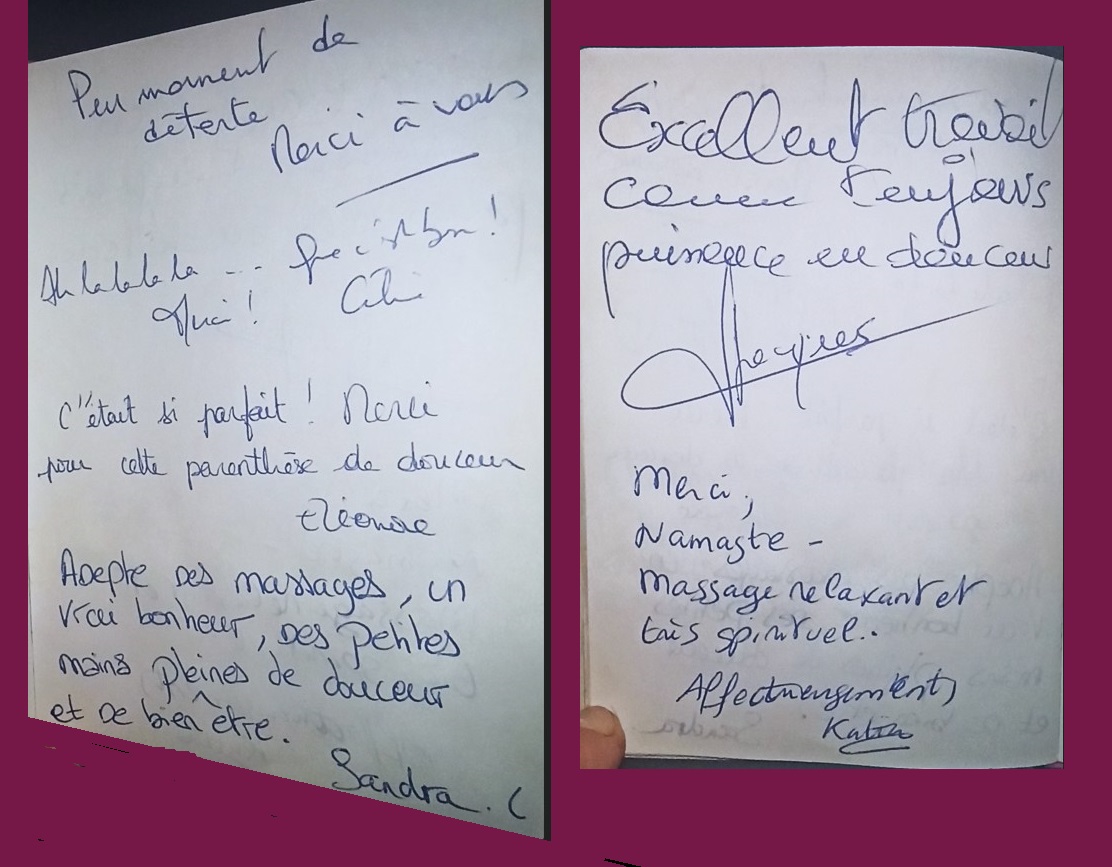 Peu moment de
détente
Merci à vous
Ah la la la la ... bon !
Merci !
C'était si parfait ! Merci
pour cette parenthèse de douceur
Eléonore
Adepte des massages, un
vrai bonheur, des petites
mains pleines de douceur
et de bien être.
Sandra. C
Excellent travail
comme toujours
puissance en douceur
Jacques
Merci,
Namaste -
Massage relaxant et
très spirituel..
Affectueusement,
Katia